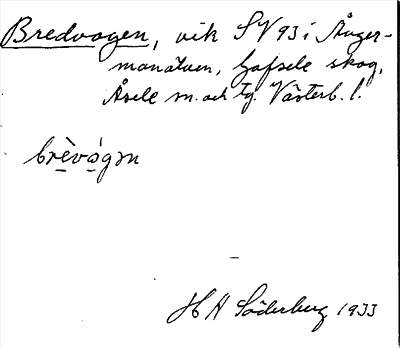 Bredvagen, vik SV 93 i Ånger-
manälven, Gafsele skog,
Åsele sn. och tg. Västerb. l.
brèvágən
H A Söderberg 1933